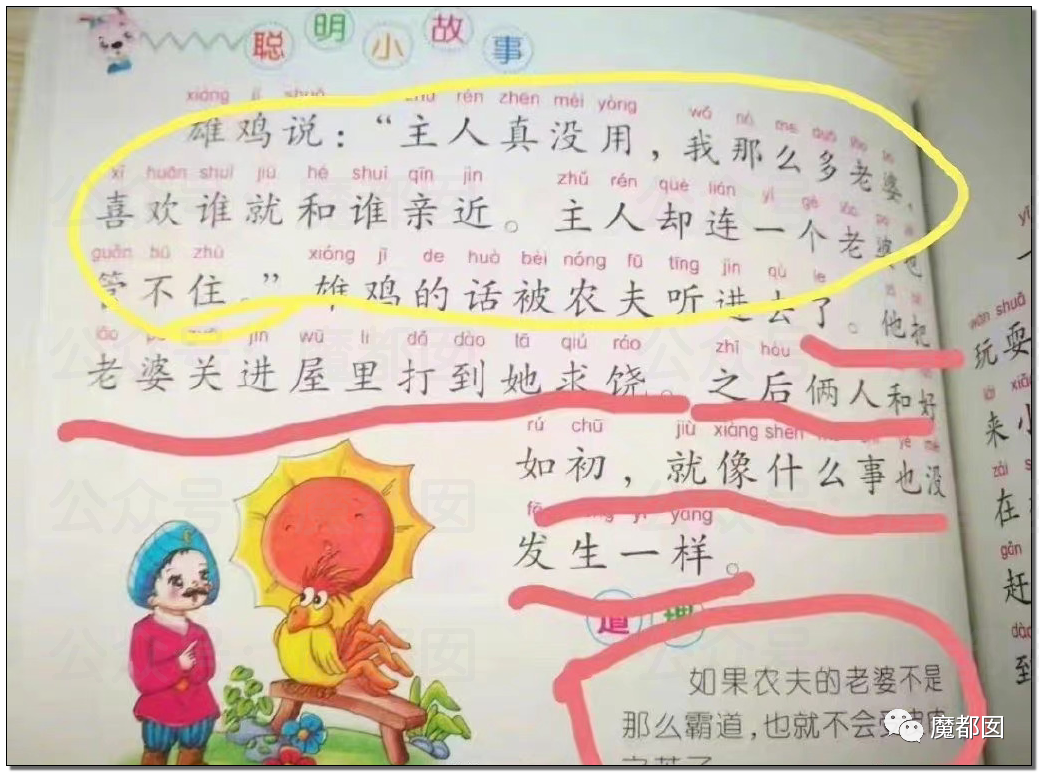 聪明小故事
xióng jī shuō zhǔ rén zhēn méi yòng wǒ nà me duō lǎo
雄鸡说：“主人真没用，我那么多老婆，
xǐ huān shuí jiù hé shuí qīn jìn zhǔ rén què lián yī gè lǎo pó
喜欢谁就和谁亲近。主人却连一个老婆也
guǎn bú zhù xióng jī de huà bèi nóng fū tīng jìn qù le
管不住。”雄鸡的话被农夫听进去了。他把
lǎo jìn wū lǐ dǎ dào tā qiú ráo zhī hòu
老婆关进屋里打到她求饶。之后俩人和好
rú chū jiù xiàng shén yě méi
如初，就像什么事也没
yī yàng
发生一样。
道理
如果农夫的老婆不是
那么霸道，也就不会受
wán shuǎ
玩耍
lái
来
zài
在
gǎn
赶
dào
到
公众号：魔都囡
魔都囡